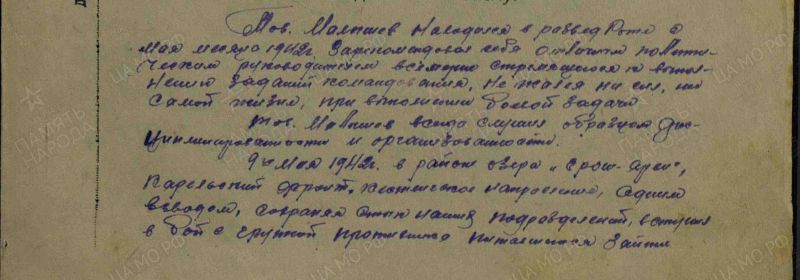 Тов. Малышев находился в развед роте с
мая месяца 1942г. Зарекомендовал себя отличным полити-
ческим руководителем всемерно стремящегося к выпол-
нению заданий командования, не жалея ни сил, ни
самой жизни, при выполнении боевой задачи
тов. Малышев всегда служил образцом дис-
циплинированности и организованности.
9го мая 1942г. в районе озера
Карельский фронт, Кестеньгское направление, одним
взводом, сохраняя стык наших подразделений, вступил
в бой с группой противника пытавшегося зайти
ПАМЯТЬ
НАРОДА
ЦАМО.РФ